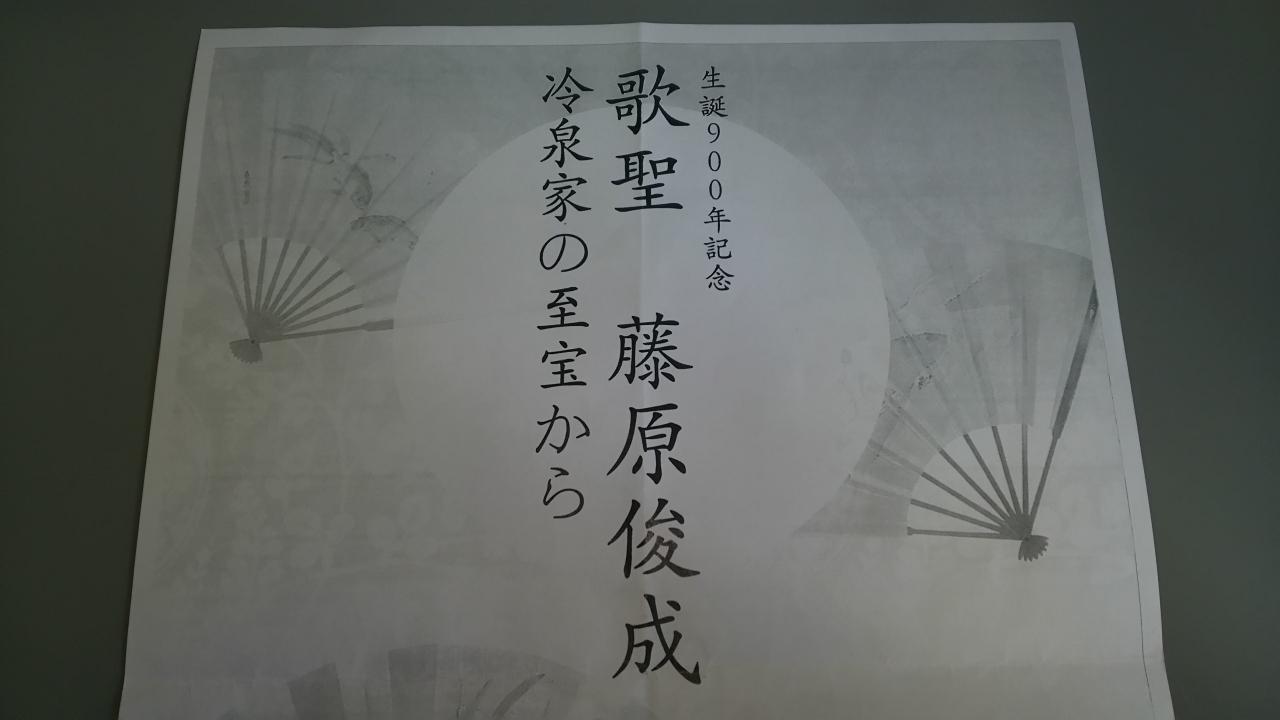 生誕900年記念
歌聖 藤原俊成
冷泉家の至宝から